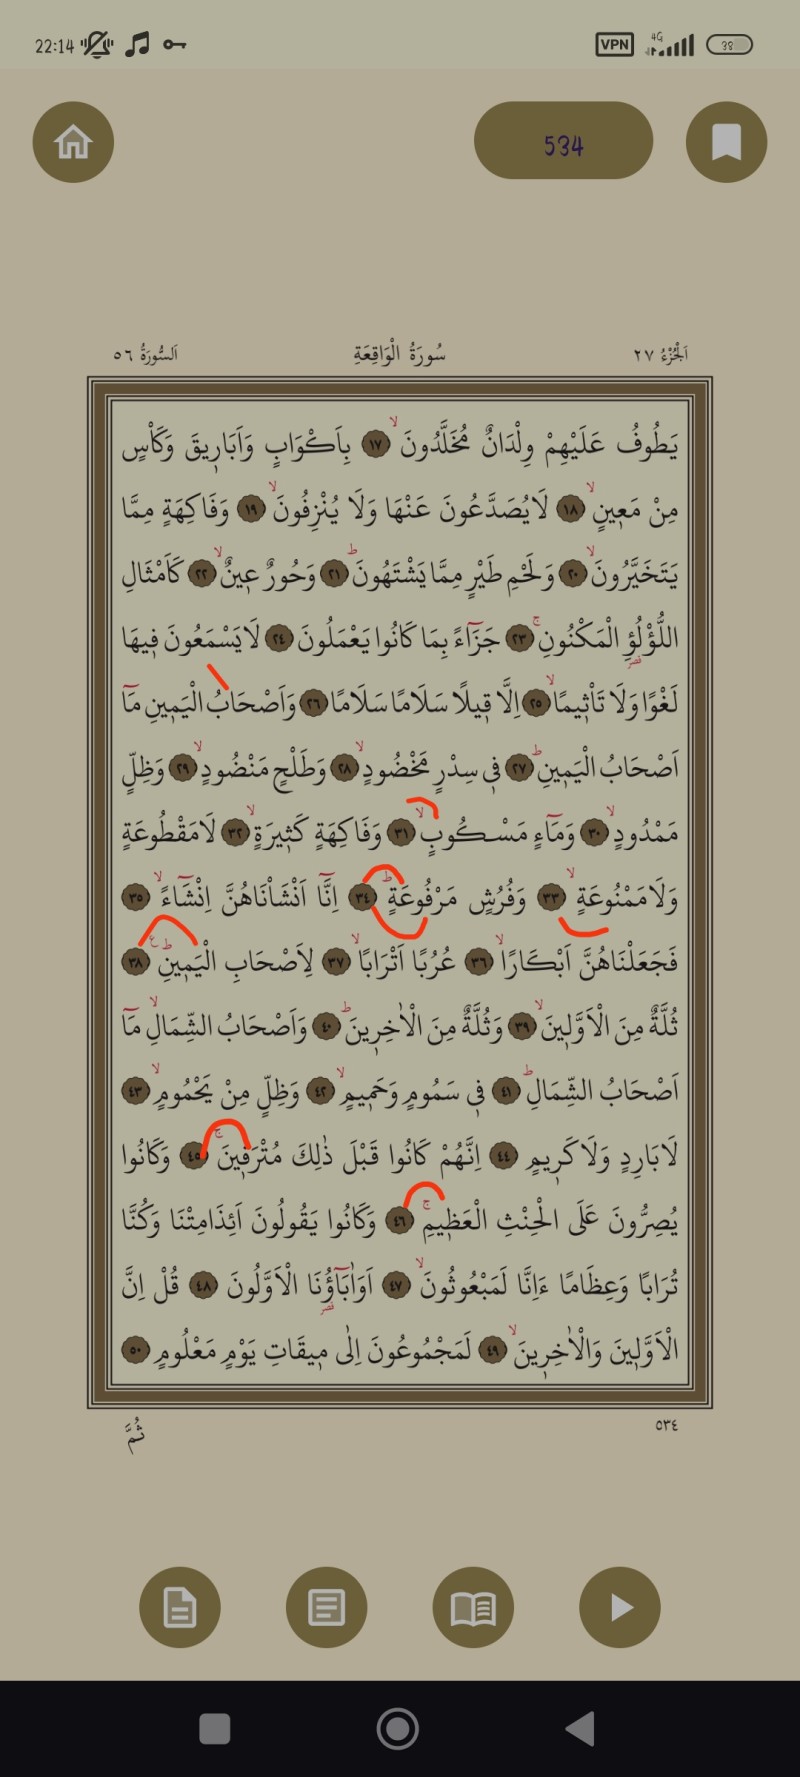 22:14 VPN 4G 38
534
اَلْجُزْءُ ٢٧ سُورَةُ الْوَاقِعَةِ اَلسُّورَةُ ٥٦
يَطُوفُ عَلَيْهِمْ وِلْدَانٌ مُخَلَّدُونَۙ ١٧ بِاَكْوَابٍ وَاَبَار۪يقَ وَكَأْسٍ
مِنْ مَع۪ينٍۙ ١٨ لَا يُصَدَّعُونَ عَنْهَا وَلَا يُنْزِفُونَۙ ١٩ وَفَاكِهَةٍ مِمَّا
يَتَخَيَّرُونَۙ ٢٠ وَلَحْمِ طَيْرٍ مِمَّا يَشْتَهُونَۜ ٢١ وَحُورٌ ع۪ينٌۙ ٢٢ كَاَمْثَالِ
اللُّؤْلُؤِ الْمَكْنُونِۚ ٢٣ جَزَٓاءً بِمَا كَانُوا يَعْمَلُونَ ٢٤ لَا يَسْمَعُونَ ف۪يهَا
لَغْوًا وَلَا تَأْث۪يمًاۙ ٢٥ اِلَّا ق۪يلًا سَلَامًا سَلَامًا ٢٦ وَاَصْحَابُ الْيَم۪ينِ مَٓا
اَصْحَابُ الْيَم۪ينِۜ ٢٧ ف۪ي سِدْرٍ مَخْضُودٍۙ ٢٨ وَطَلْحٍ مَنْضُودٍۙ ٢٩ وَظِلٍّ
مَمْدُودٍۙ ٣٠ وَمَٓاءٍ مَسْكُوبٍۙ ٣١ وَفَاكِهَةٍ كَث۪يرَةٍۙ ٣٢ لَا مَقْطُوعَةٍ
وَلَا مَمْنُوعَةٍۙ ٣٣ وَفُرُشٍ مَرْفُوعَةٍۜ ٣٤ اِنَّٓا اَنْشَأْنَاهُنَّ اِنْشَٓاءًۙ ٣٥
فَجَعَلْنَاهُنَّ اَبْكَارًاۙ ٣٦ عُرُبًا اَتْرَابًاۙ ٣٧ لِاَصْحَابِ الْيَم۪ينِۜ ع ٣٨
ثُلَّةٌ مِنَ الْاَوَّل۪ينَۙ ٣٩ وَثُلَّةٌ مِنَ الْاٰخِر۪ينَۜ ٤٠ وَاَصْحَابُ الشِّمَالِۙ مَٓا
اَصْحَابُ الشِّمَالِۜ ٤١ ف۪ي سَمُومٍ وَحَم۪يمٍۙ ٤٢ وَظِلٍّ مِنْ يَحْمُومٍۙ ٤٣
لَا بَارِدٍ وَلَا كَر۪يمٍ ٤٤ اِنَّهُمْ كَانُوا قَبْلَ ذٰلِكَ مُتْرَف۪ينَۚ ٤٥ وَكَانُوا
يُصِرُّونَ عَلَى الْحِنْثِ الْعَظ۪يمِۚ ٤٦ وَكَانُوا يَقُولُونَ اَئِذَا مِتْنَا وَكُنَّا
تُرَابًا وَعِظَامًا ءَاِنَّا لَمَبْعُوثُونَۙ ٤٧ اَوَاٰبَٓاؤُ۬نَا الْاَوَّلُونَ ٤٨ قُلْ اِنَّ
الْاَوَّل۪ينَ وَالْاٰخِر۪ينَۙ ٤٩ لَمَجْمُوعُونَ اِلٰى م۪يقَاتِ يَوْمٍ مَعْلُومٍ ٥٠
٥٣٤ ثُمَّ